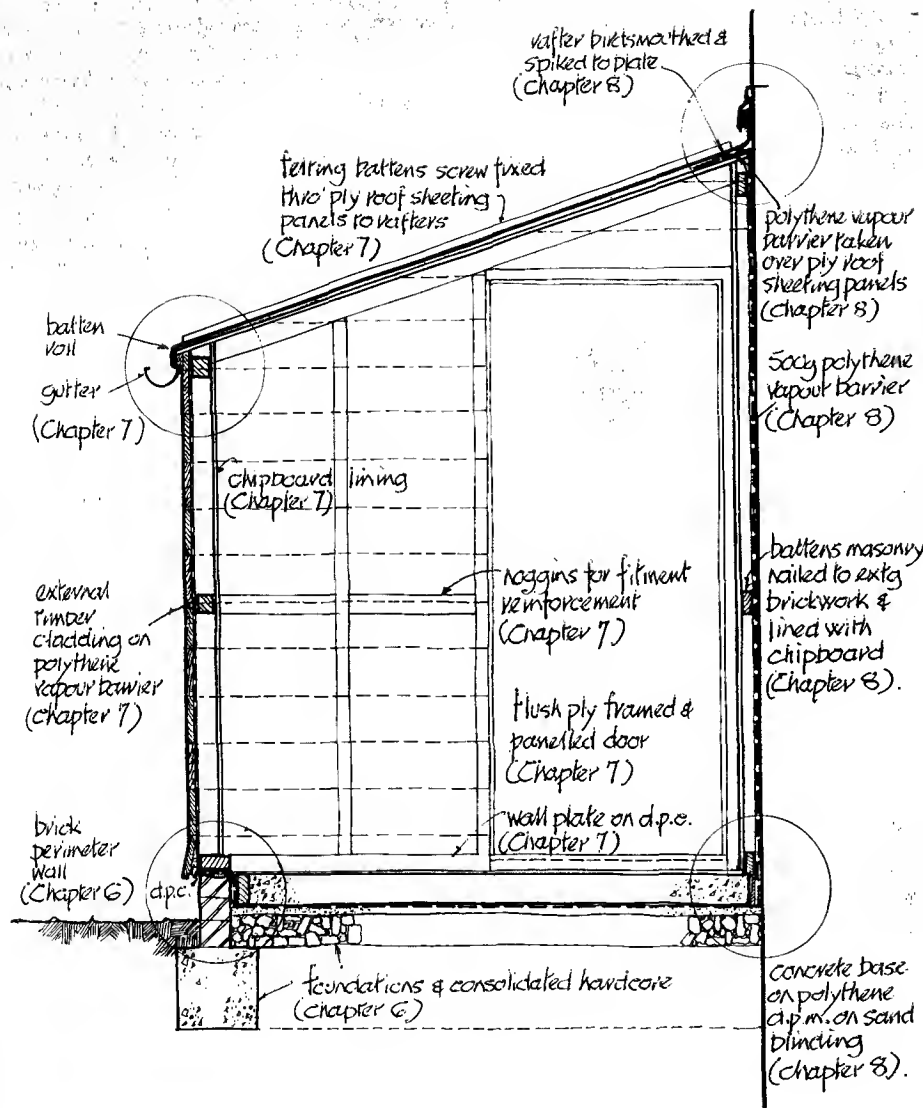 rafter birdsmouthed &
spiked to plate
(Chapter 8)
felting battens screw fixed
thro' ply roof sheeting
panels to rafters
(Chapter 7)
polythene vapour
barrier taken
over ply roof
sheeting panels
(Chapter 8)
batten
roll
gutter
(Chapter 7)
500g polythene
vapour barrier
(Chapter 8)
chipboard lining
(Chapter 7)
battens masonry
nailed to extg
brickwork &
lined with
chipboard
(Chapter 8).
noggins for fitment
reinforcement
(Chapter 7)
external
timber
cladding on
polythene
vapour barrier
(Chapter 7)
flush ply framed &
panelled door
(Chapter 7)
wall plate on d.p.c.
(Chapter 7)
brick
perimeter
wall
(Chapter 6)
d.p.c.
foundations & consolidated hardcore
(Chapter 6)
concrete base
on polythene
d.p.m. on sand
blinding
(Chapter 8).